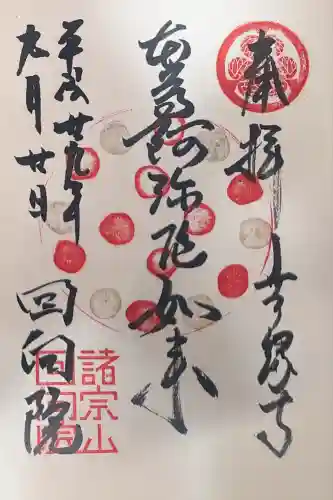 奉拝
無縁寺
本尊阿弥陀如来
平成廿九年
九月廿日
回向院
諸宗山
回向院